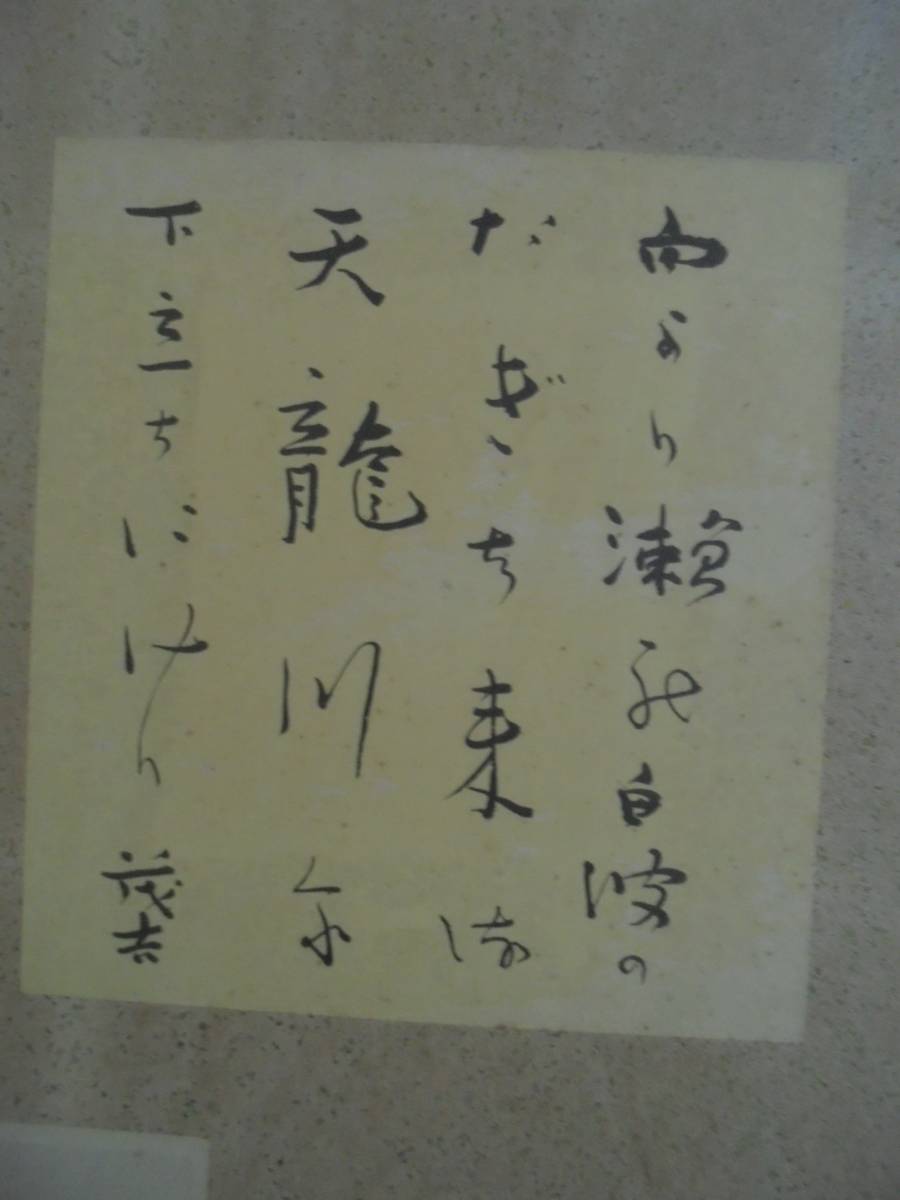 向より瀬の白波の
たぎち来る
天龍川に
下立ちにけり 茂吉